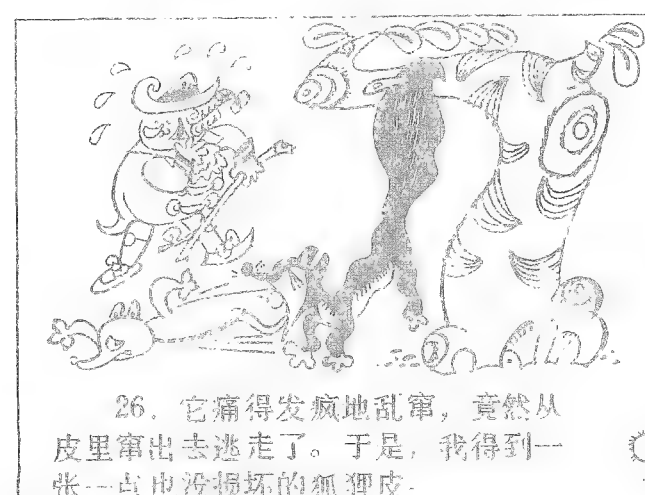 26. 它痛得发疯地乱窜，竟然从
皮里窜出去逃走了。于是，我得到一
张一点也没损坏的狐狸皮。